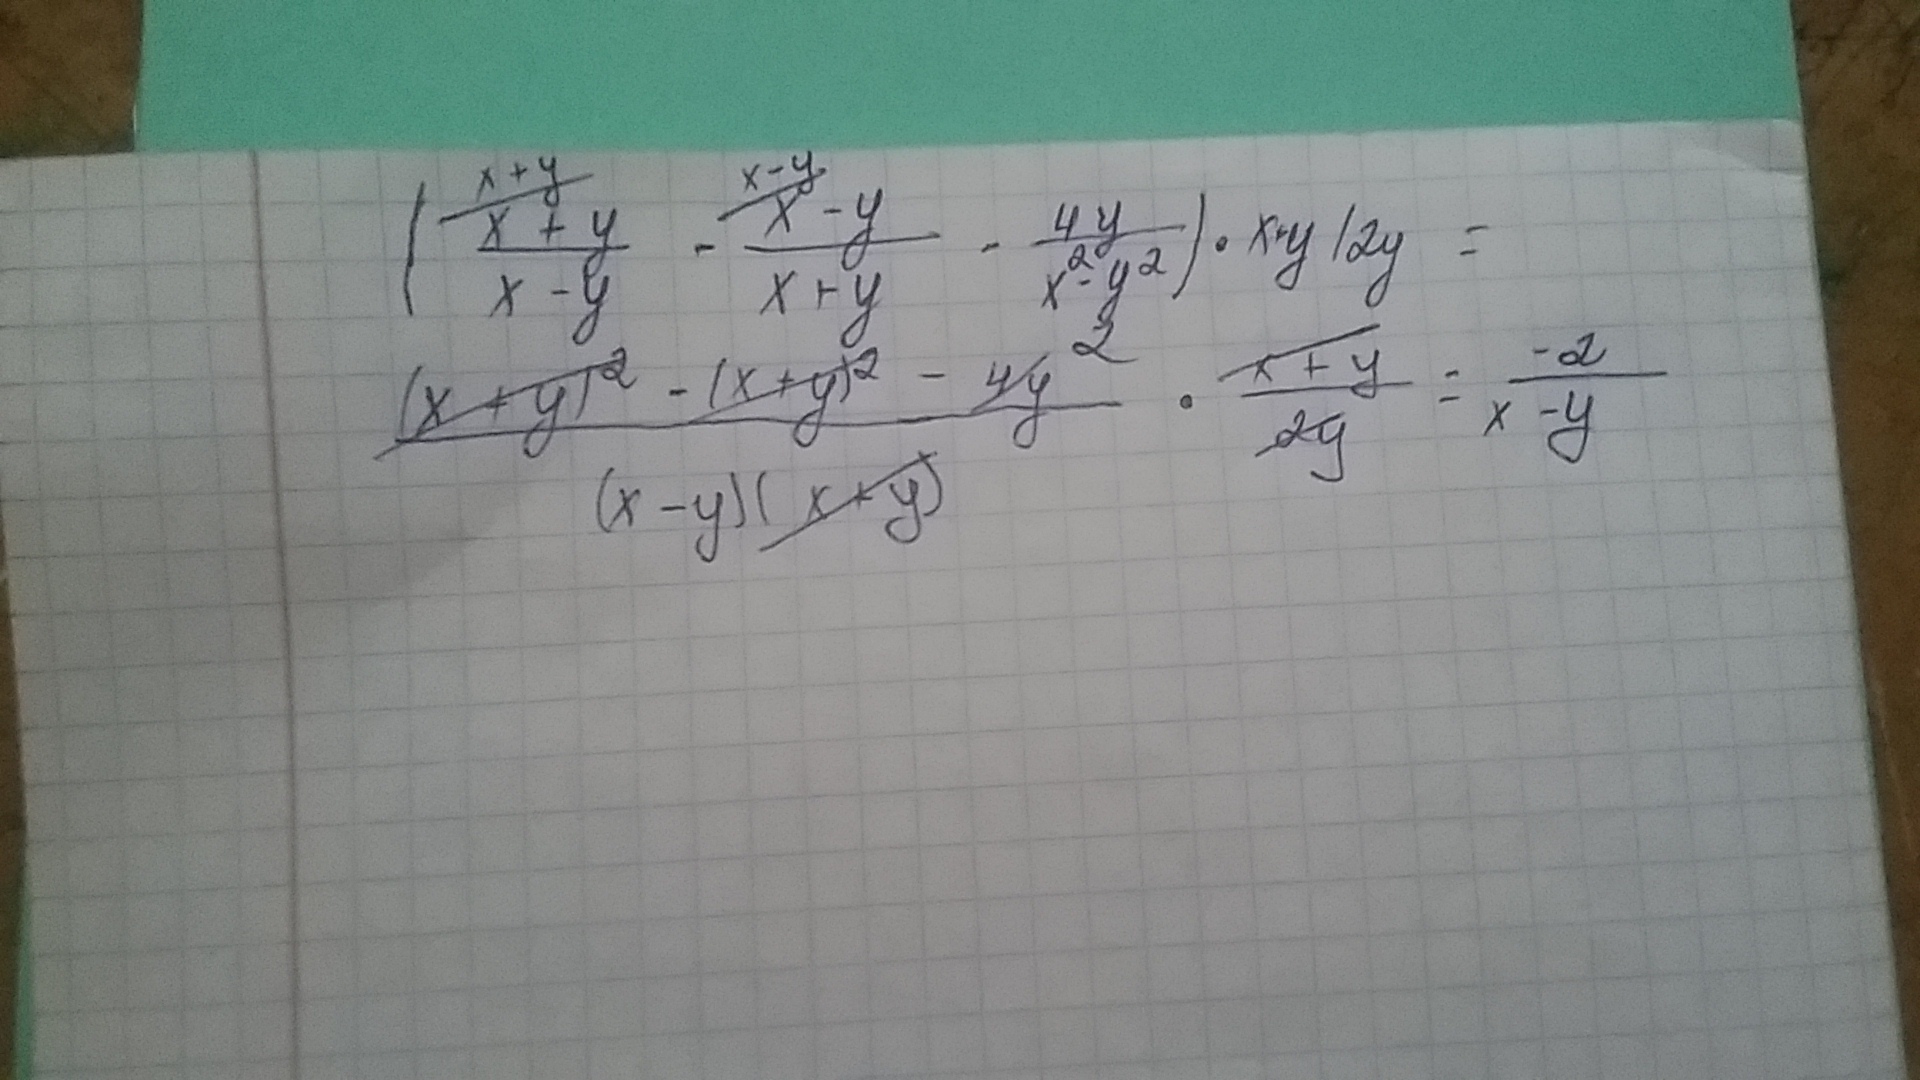 ( x+y/ (x+y)/(x-y) - x-y/ (x-y)/(x+y) - 4y/(x²-y²) ) · x+y/2y =
((x+y)² - (x+y)² - 4y 2)/((x-y)(x+y)) · (x+y)/(2y) = -2/(x-y)